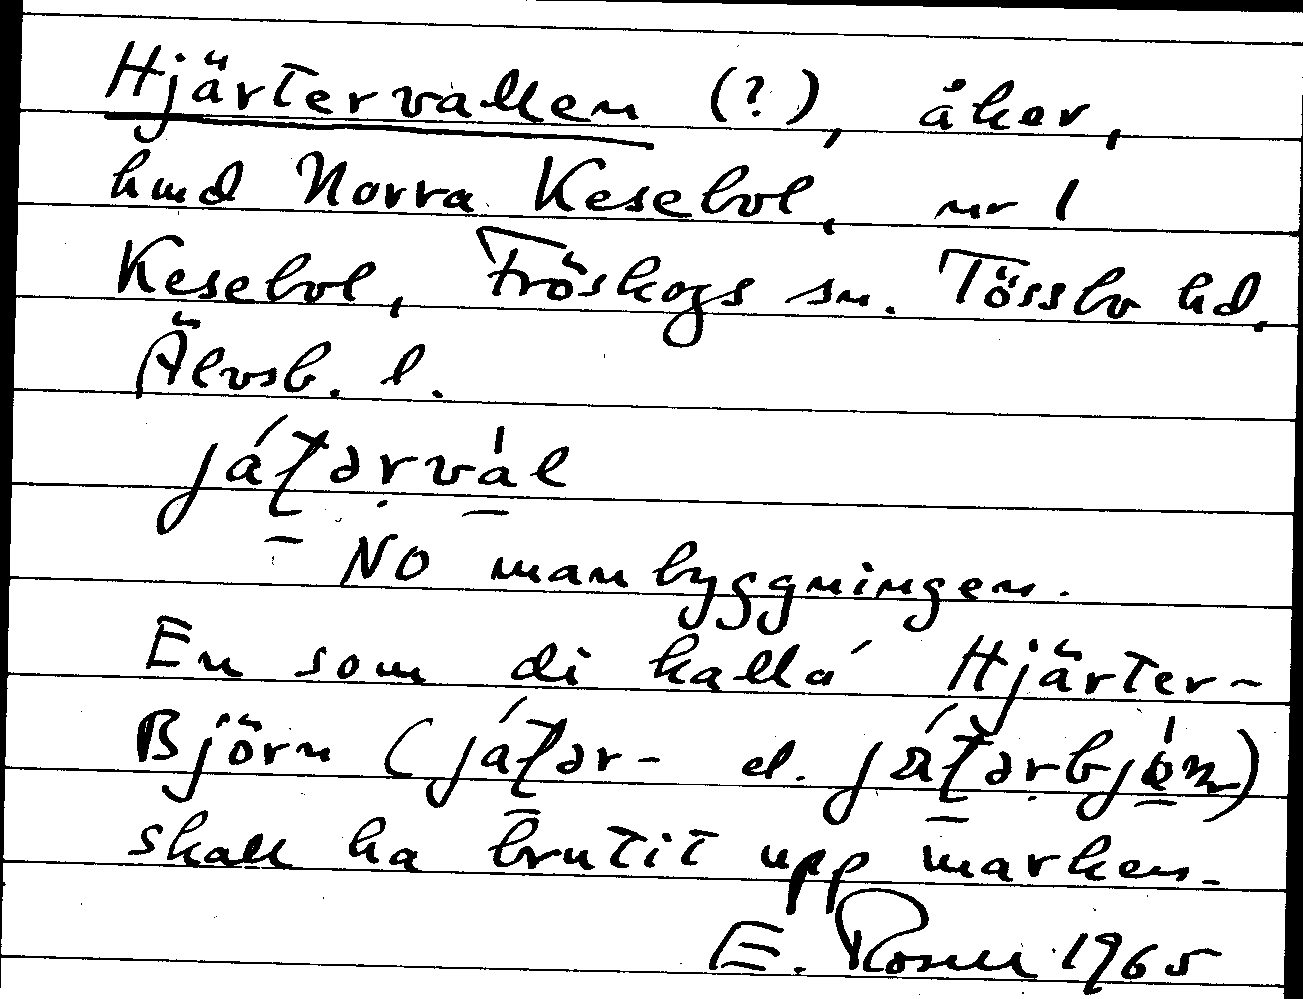 Hjärtervallen (?), åker,
hmd Norra Kesebol, nr 1
Kesebol, Fröskogs sn. Tössbo hd.
Älvsb. l.
NO manbyggningen.
En som di kalla Hjärter-
Björn (              el.              )
skall ha brutit upp marken.
E. Rosell 1965